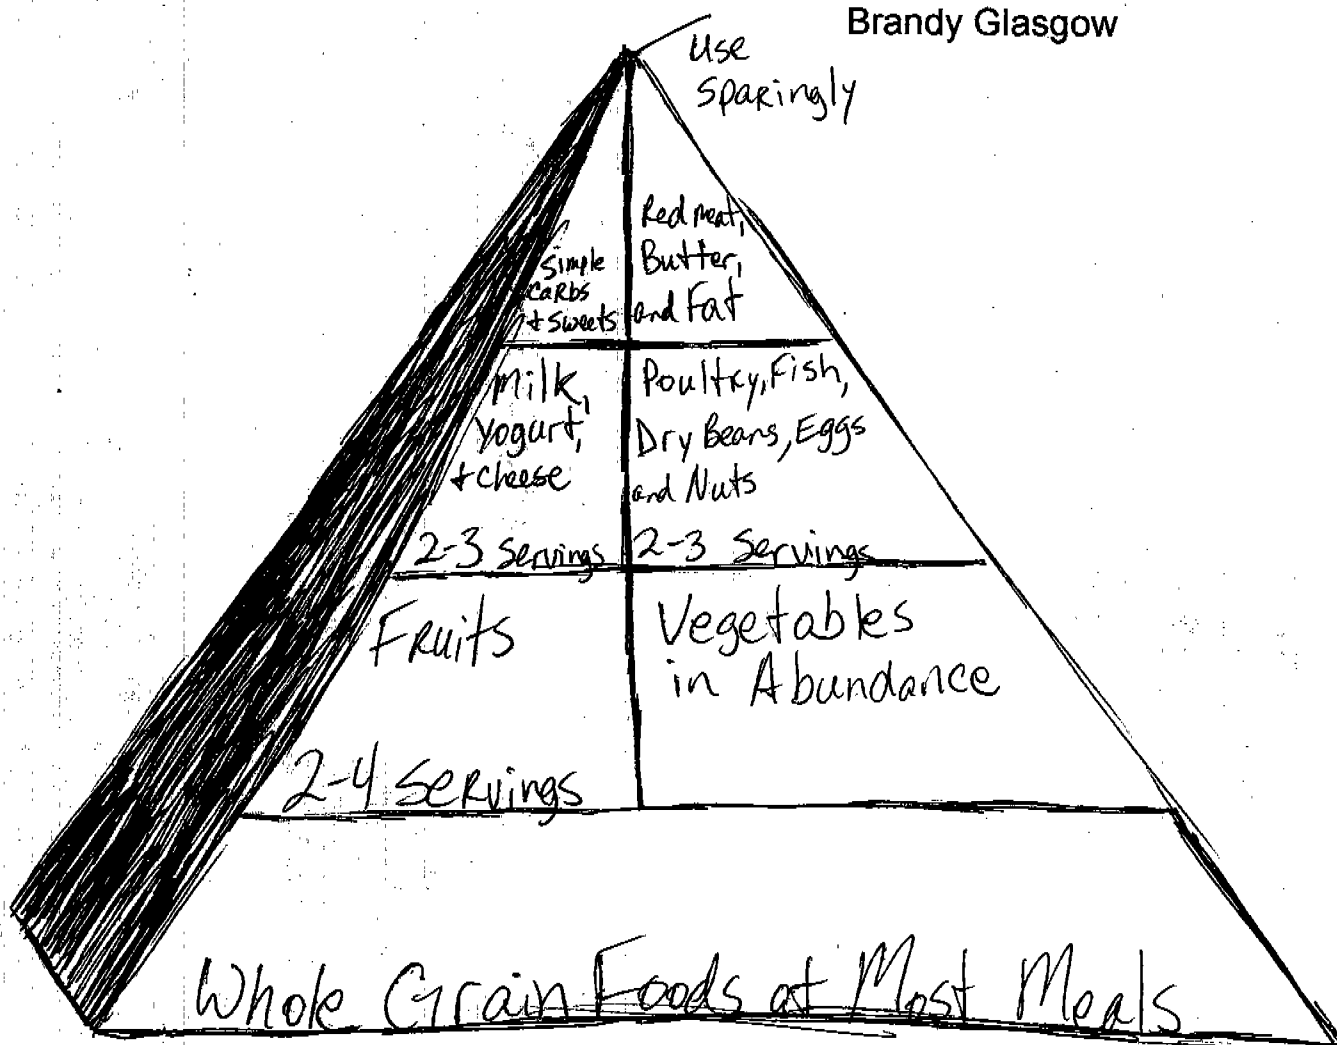 Brandy Glasgow
Use
Sparingly
Simple
Carbs
+ Sweets
Red meat,
Butter,
and Fat
Milk,
Yogurt,
+ Cheese
2-3 Servings
Poultry, Fish,
Dry Beans, Eggs
and Nuts
2-3 Servings
Fruits
2-4 Servings
Vegetables
in Abundance
Whole Grain Foods at Most Meals